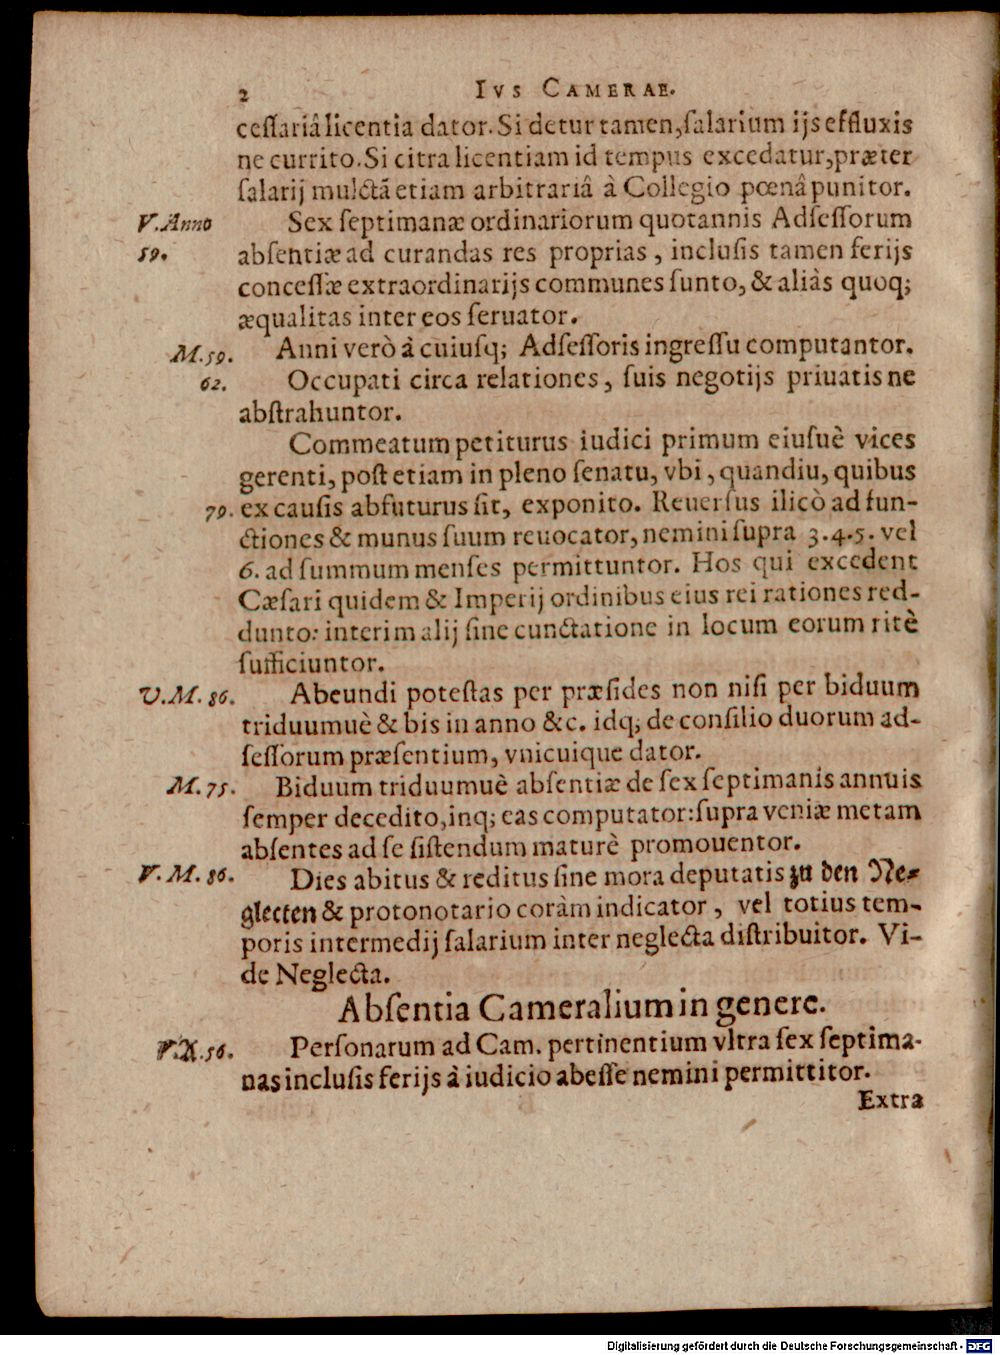 2 IVS CAMERAE.
ceſſariâ licentia dator. Si detur tamen, ſalarium ijs effluxis
ne currito. Si citra licentiam id tempus excedatur, præter
ſalarij mulctā etiam arbitrariâ à Collegio pœnâ punitor.
V. Anno Sex ſeptimanæ ordinariorum quotannis Adſeſſorum
59. abſentiæ ad curandas res proprias, incluſis tamen ferijs
conceſſæ extraordinarijs communes ſunto, & aliàs quoq;
æqualitas inter eos ſeruator.
M. 59. Anni verò à cuiuſq; Adſeſſoris ingreſſu computantor.
62. Occupati circa relationes, ſuis negotijs priuatis ne
abſtrahuntor.
Commeatum petiturus iudici primum eiuſuè vices
gerenti, poſt etiam in pleno ſenatu, vbi, quandiu, quibus
79. ex cauſis abfuturus ſit, exponito. Reuerſus ilicò ad fun-
ctiones & munus ſuum reuocator, nemini ſupra 3.4.5. vel
6. ad ſummum menſes permittuntor. Hos qui excedent
Cæſari quidem & Imperij ordinibus eius rei rationes red-
dunto: interim alij ſine cunctatione in locum eorum ritè
ſufficiuntor.
V. M. 86. Abeundi poteſtas per præſides non niſi per biduum
triduumuè & bis in anno &c. idq; de conſilio duorum ad-
ſeſſorum præſentium, vnicuique dator.
M. 75. Biduum triduumuè abſentiæ de ſex ſeptimanis annuis
ſemper decedito, inq; eas computator: ſupra veniæ metam
abſentes ad ſe ſiſtendum maturè promouentor.
V. M. 86. Dies abitus & reditus ſine mora deputatis zu den Ne-
glecten & protonotario coràm indicator, vel totius tem-
poris intermedij ſalarium inter neglecta diſtribuitor. Vi-
de Neglecta.
Abſentia Cameralium in genere.
V. X. 56. Perſonarum ad Cam. pertinentium vltra ſex ſeptima-
nas incluſis ferijs à iudicio abeſſe nemini permittitor.
Extra
Digitalisierung gefördert durch die Deutsche Forschungsgemeinschaft - DFG